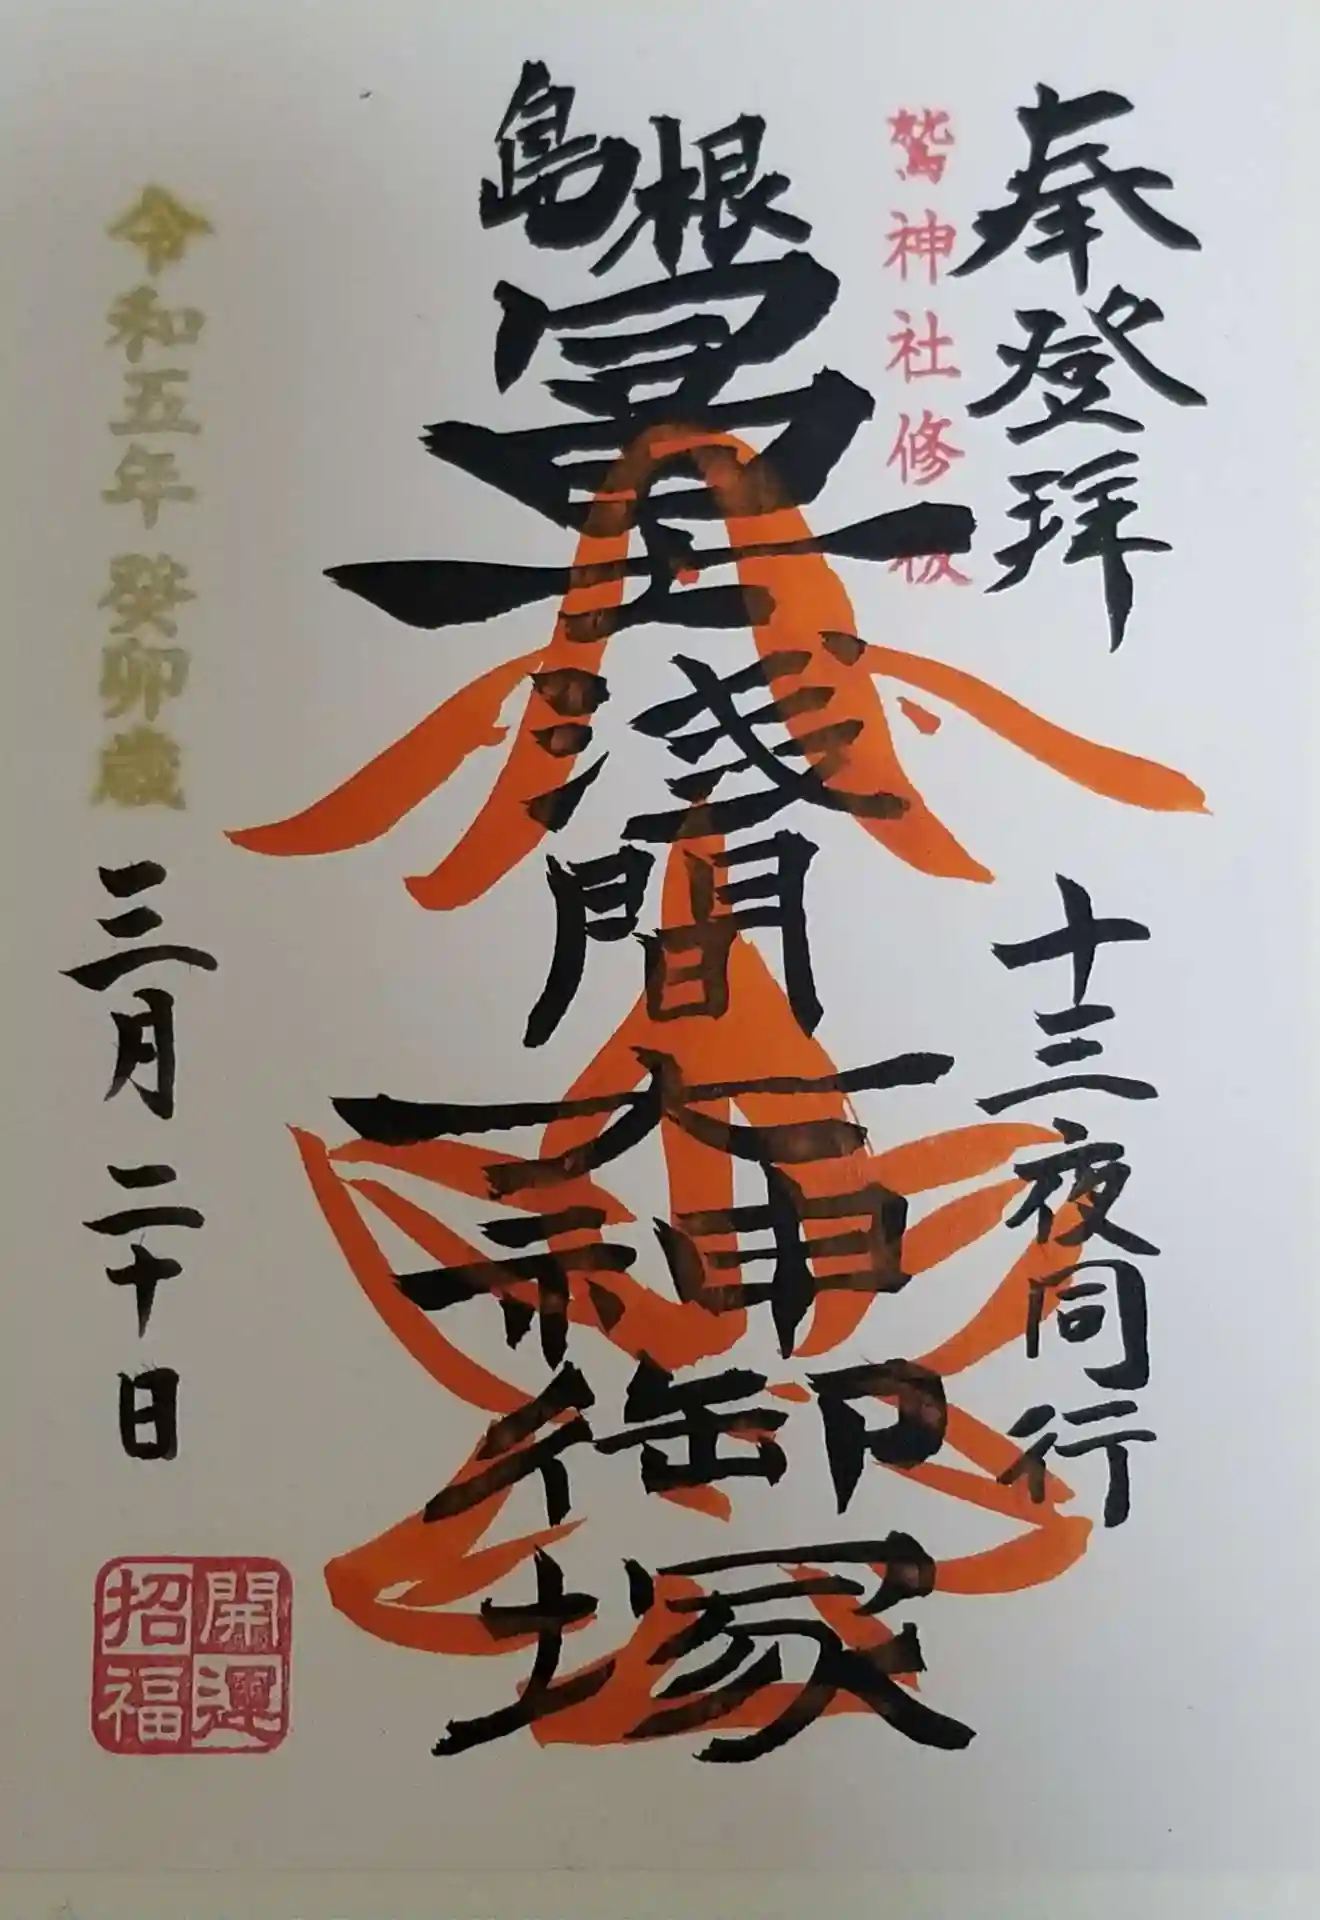 奉登拝
十三夜同行
鷲神社修祓
島根
冨士浅間大神御塚
令和五年癸卯歳
三月二十日
開運
招福